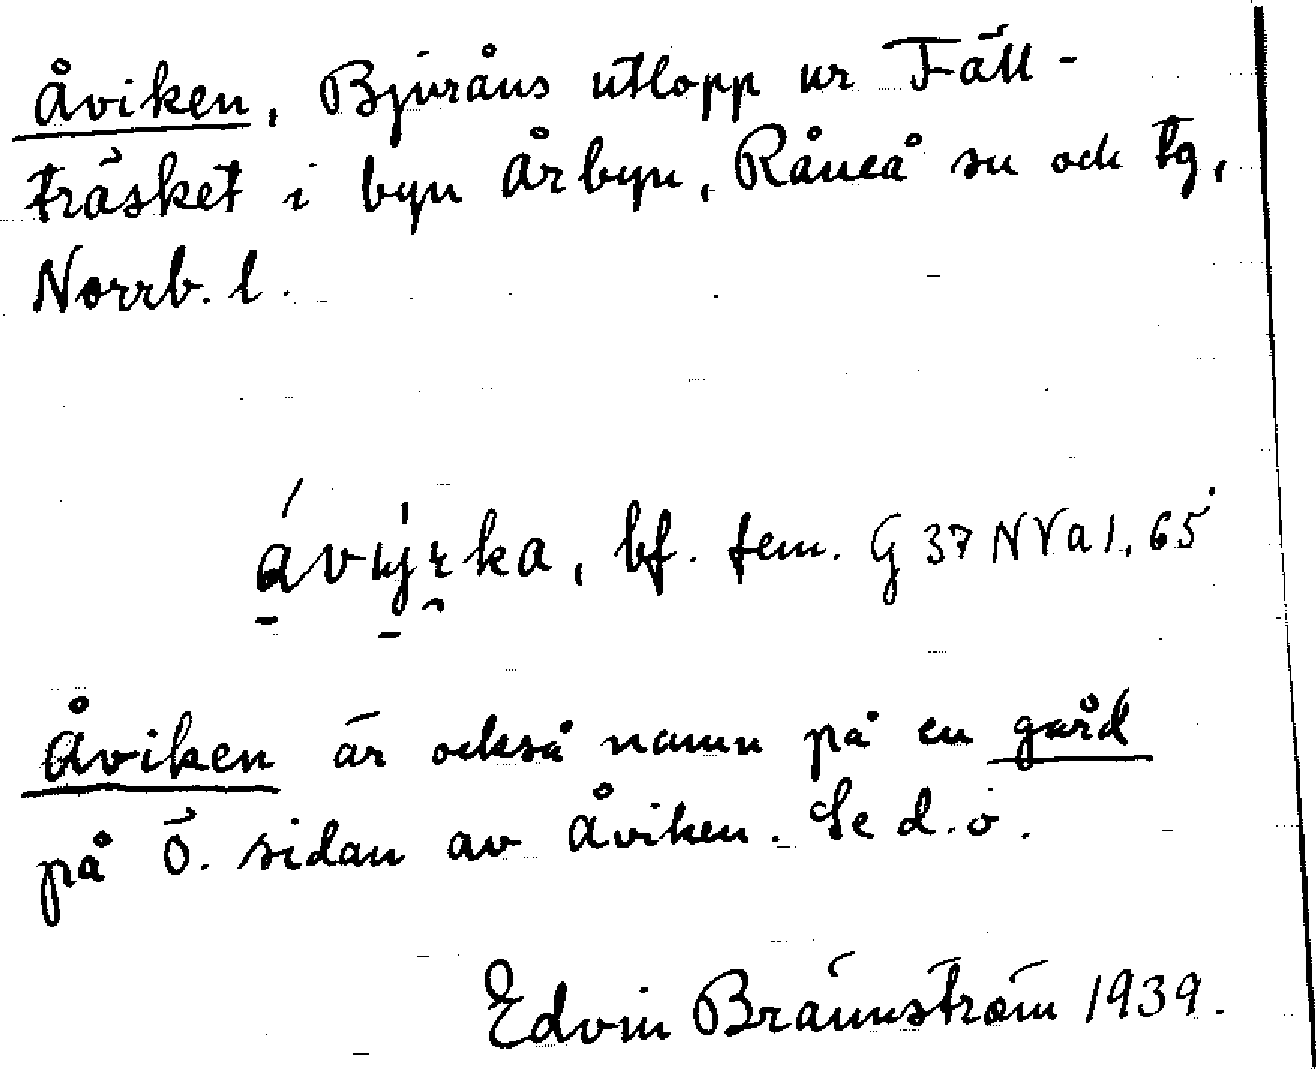 Åviken, Bjuråns utlopp ur Fäll-
träsket i byn Årbyn, Råneå sn och tg,
Norrb. l.
bf. fem. G 37 N Va 1, 65
Åviken är också namn på en gård
på ö. sidan av Åviken. Se d. o.
Edvin Brännström 1939.